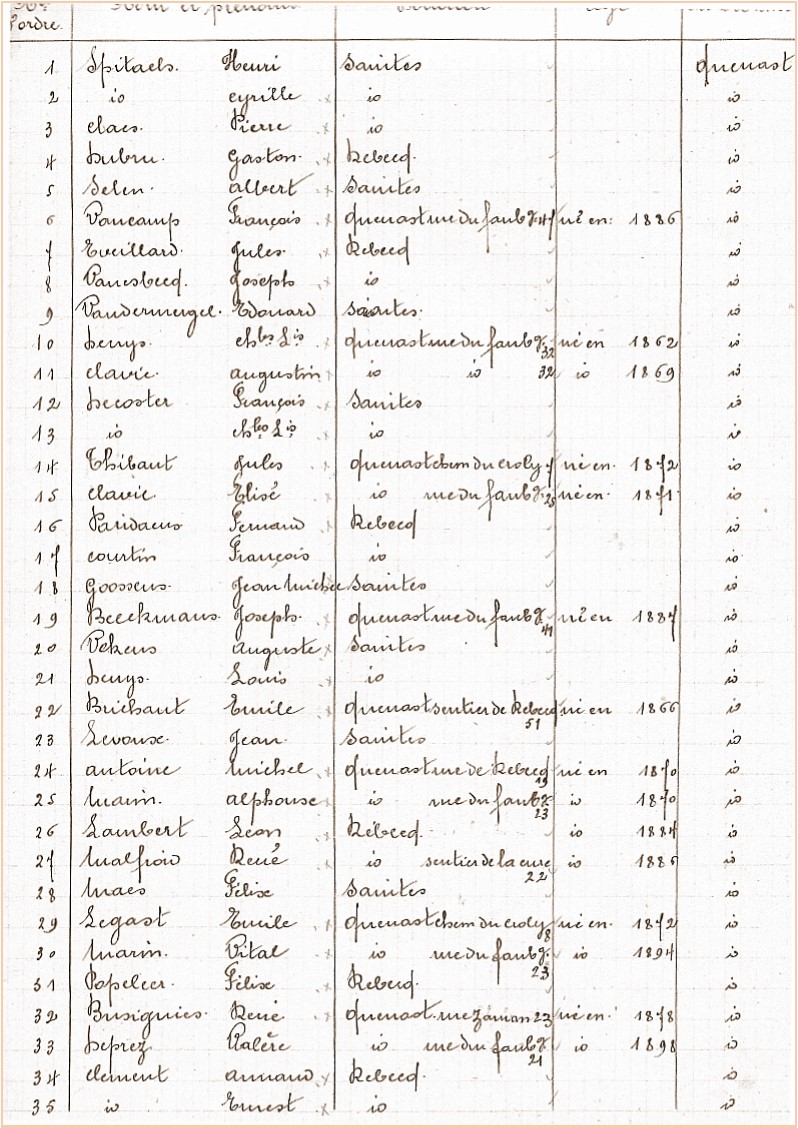 d'ordre.
1 Spitaels. Henri Saintes quenast
2 io cyrille io io
3 claes. Pierre io io
4 Dubru. Gaston. Rebecq. io
5 Selen. albert Saintes io
6 Vancamp François quenast rue du faubg. 41 né en: 1886 io
7 Eveillard. Jules. Rebecq io
8 Vanesbecq. Joseph io io
9 Edouard Saintes. io
10 Denys. chles Ls quenast rue du faubg. 32 né en 1862 io
11 clavie. augustin io io 32 io 1869 io
12 Decoster François Saintes io
13 io chles Ls io io
14 Thibaut Jules quenast chem du croly 7 né en. 1872 io
15 clavie. Elisé io rue du faubg. 25 né en. 1871 io
16 Paridaens Fernand Rebecq io
17 courtin François io io
18 Goossens. Jean Michel Saintes io
19 Beeckmans. Joseph. quenast rue du faubg. 41 né en 1887 io
20 Vekens auguste Saintes io
21 Denys. Louis io io
22 Brichaut Emile quenast sentier de Rebecq 51 né en 1866 io
23 Jean. Saintes io
24 antoine Michel quenast rue de Rebecq 19 né en 1870 io
25 Marin. alphonse io rue du faubg. 23 io 1870 io
26 Lambert Leon Rebecq. io 1884 io
27 Malfroid René io sentier de la cure 22 io 1886 io
28 Maes Félix Saintes io
29 Legast Emile quenast chem du croly 8 né en. 1872 io
30 Marin. Vital io rue du faubg. 23 io 1894 io
31 Popeleer. Félix Rebecq. io
32 Busignies. René quenast. rue Zaman 23 né en. 1878 io
33 Deprez Valère io rue du faubg. 21 io 1898 io
34 clement armand Rebecq. io
35 io Ernest io io